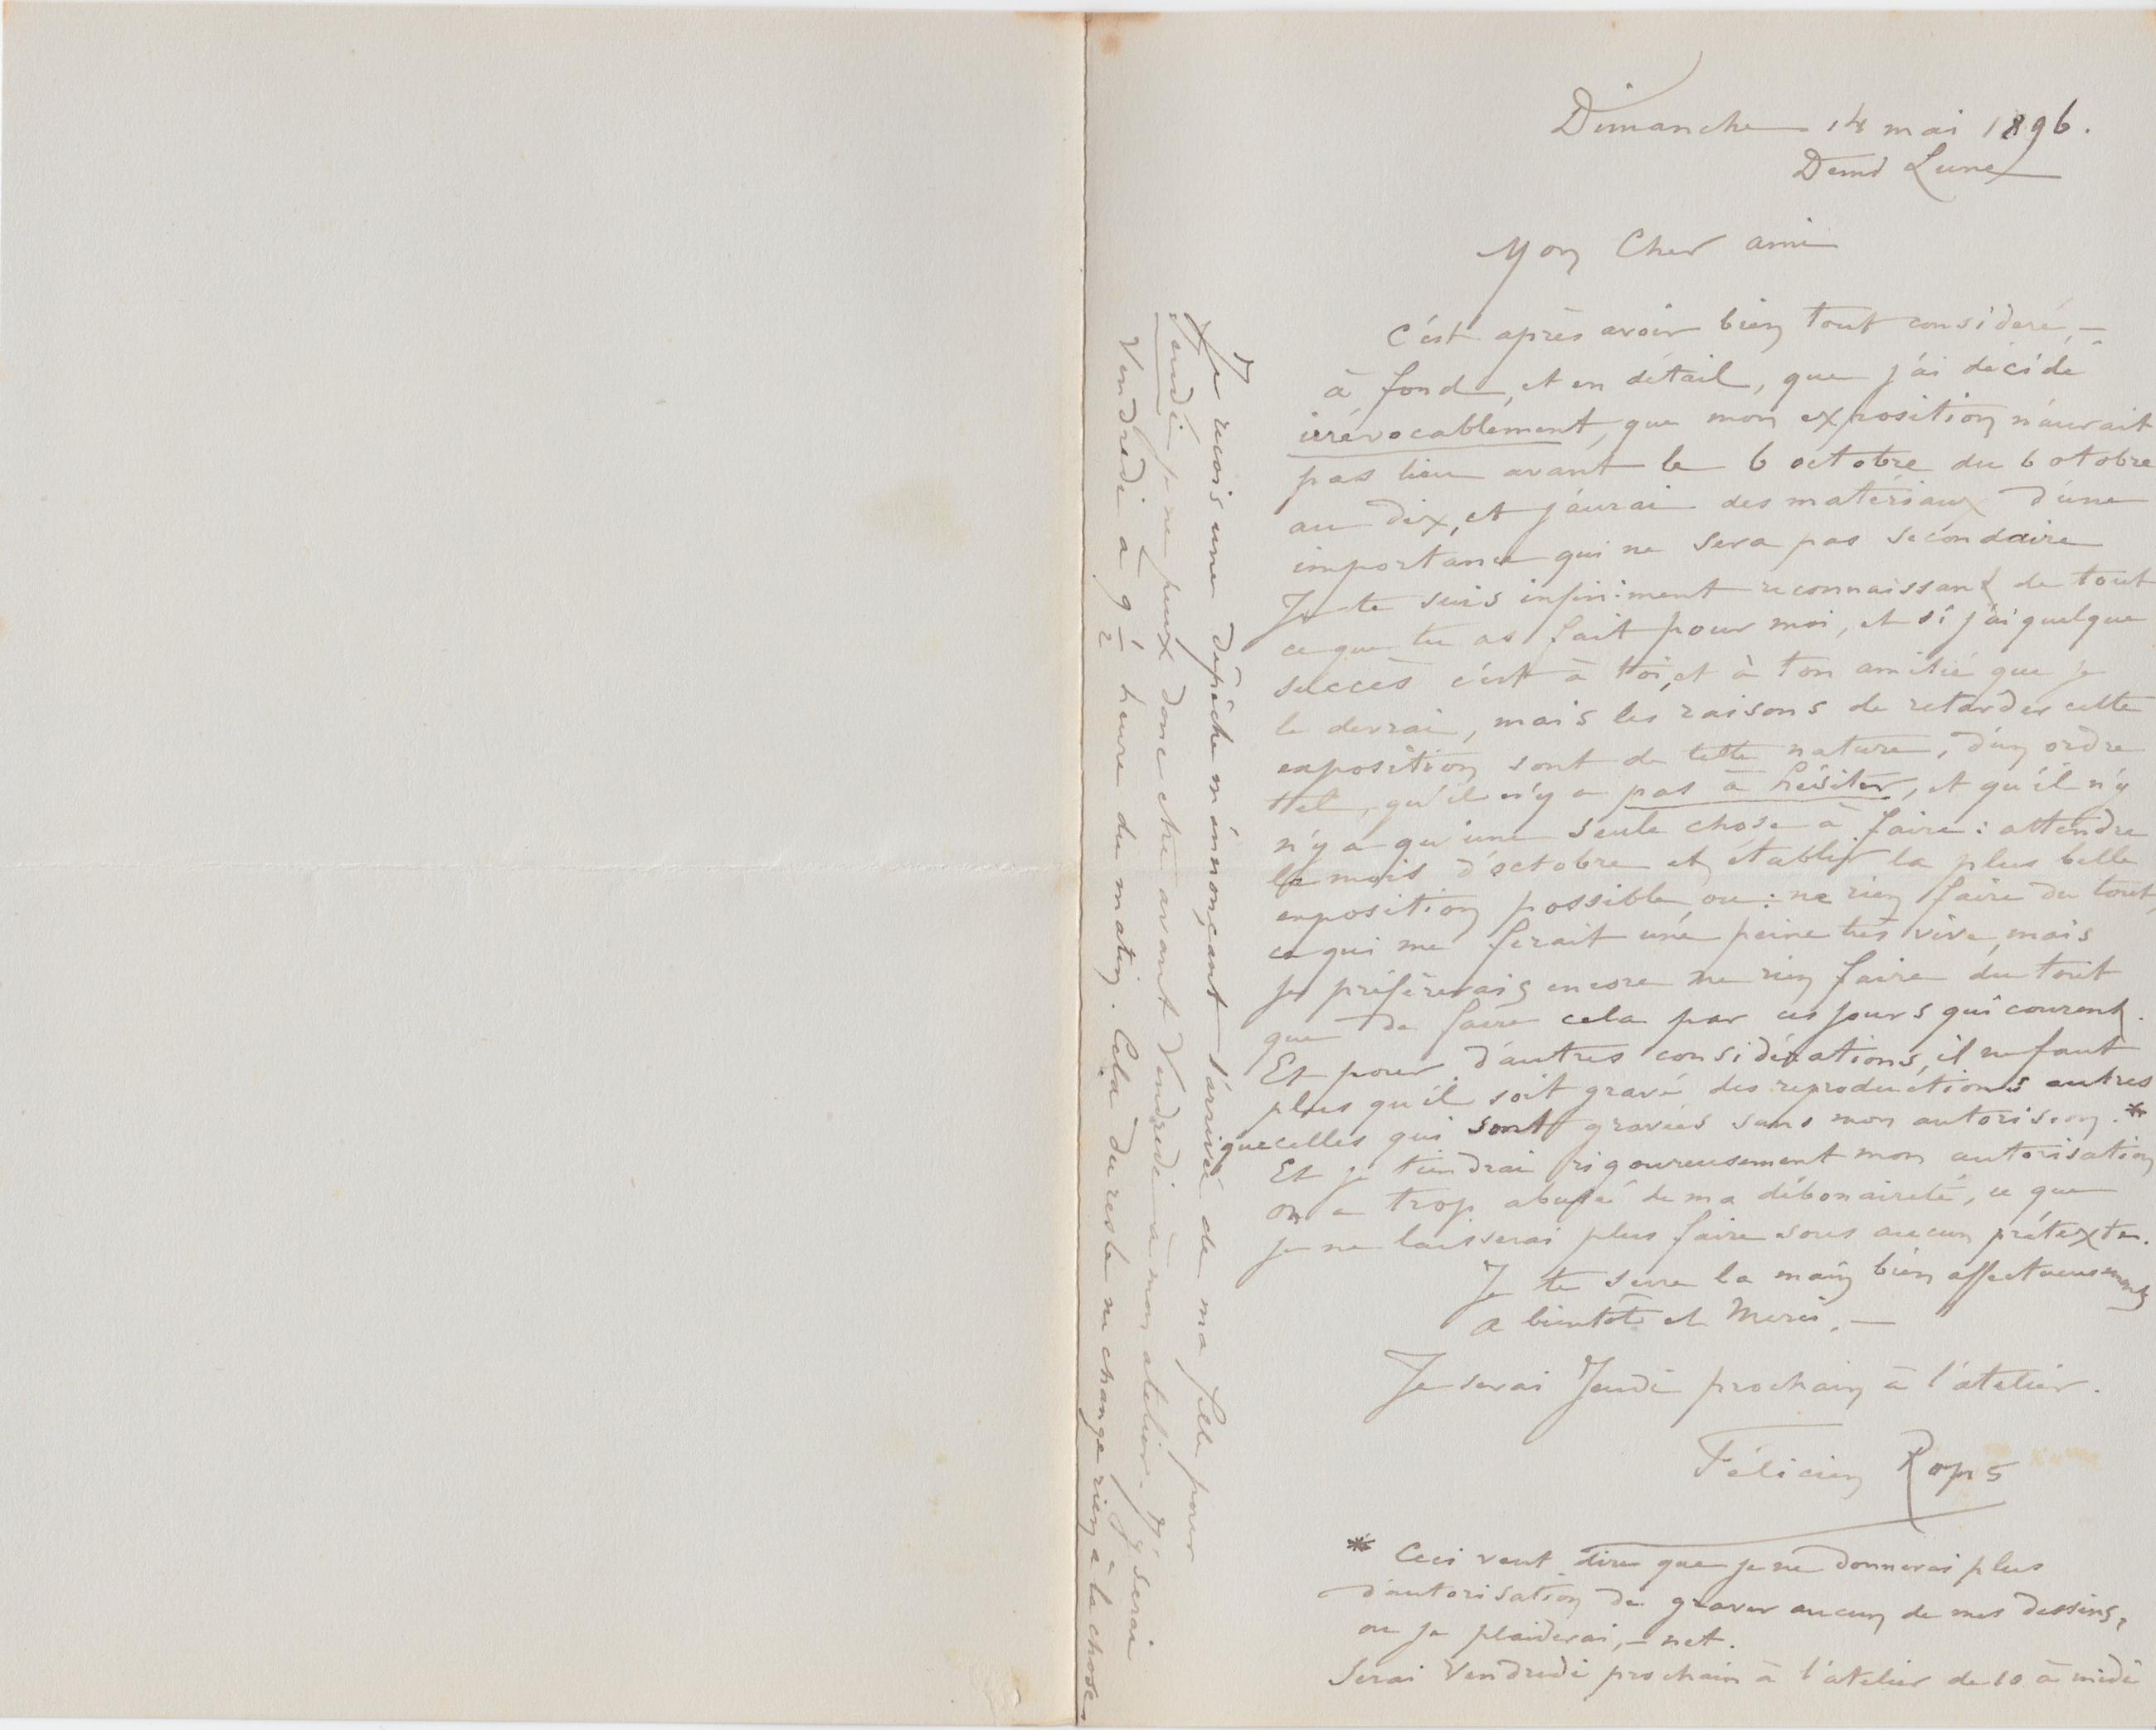 Dimanche 14 mai 1896.
Demi Lune
Mon Cher ami
C'est après avoir bien tout consideré, –
à fond, et en détail, que j'ai décidé
irrévocablement, que mon exposition n'aurait
pas lieu avant le 6 octobre du 6 otobre
au dix, et j'aurai des matériaux d'une
importance qui ne sera pas secondaire
Je te suis infiniment reconnaissant de tout
ce que tu as fait pour moi, et si j'ai quelque
succès c'est à toi, et à ton amitié que je
le devrai, mais les raisons de retarder cette
exposition sont de telle nature, d'un ordre
tel, qu'il n'y a pas à hésiter, et qu'il n'y
n'y a qu'une seule chose à faire : attendre
le mois d'octobre et établir la plus belle
exposition possible, ou : ne rien faire du tout,
ce qui me ferait une peine très vive, mais
je préfèrerais encore ne rien faire du tout
que de faire cela par ces jours qui courent.
Et pour d'autres considérations, il ne faut
plus qu'il soit gravé des reproductions autres
que celles qui sont gravées sans mon autorison. *
Et je tiendrai rigoureusement mon autorisation
on a trop abusé de ma débonaireté, ce que
je ne laisserai plus faire sous aucun prétexte.
Je te serre la main bien affectueusement
a bientôt et Merci. —
Je serai Jeudi prochain à l'atelier.
Félicien Rops
* Ceci veut dire que je ne donnerai plus
d'autorisation de graver aucun de mes dessins,
ou je plaiderai, – net.
Serai Vendredi prochain à l'atelier de 10 à midi
Je reçois une dépêche m'annonçant l'arrivée de ma fille pour
Jeudi je ne peux donc être avant Vendredi à mon atelier. J'y serai
Vendredi à 9 1/2 heure du matin. Cela du reste ne change rien à la chose